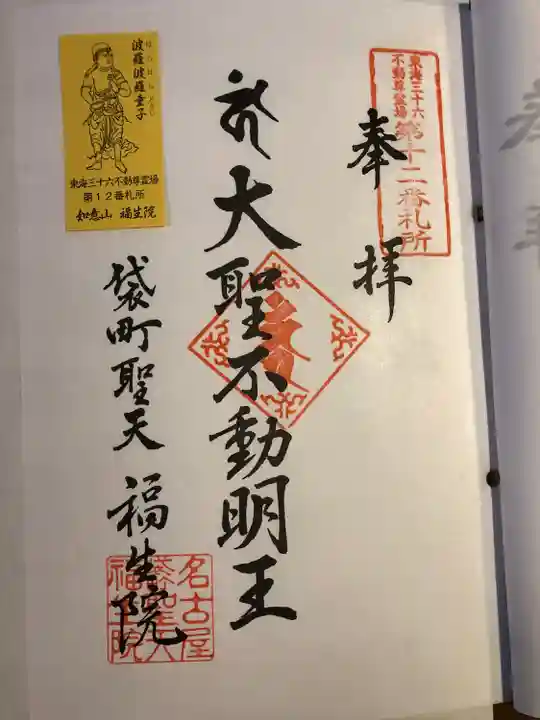 東海三十六
不動尊霊場
第十二番札所
奉拝
大聖不動明王
袋町聖天
福生院
名古屋
福生院
はらはらどうじ
波羅波羅童子
東海三十六不動尊霊場
第12番札所
如意山 福生院